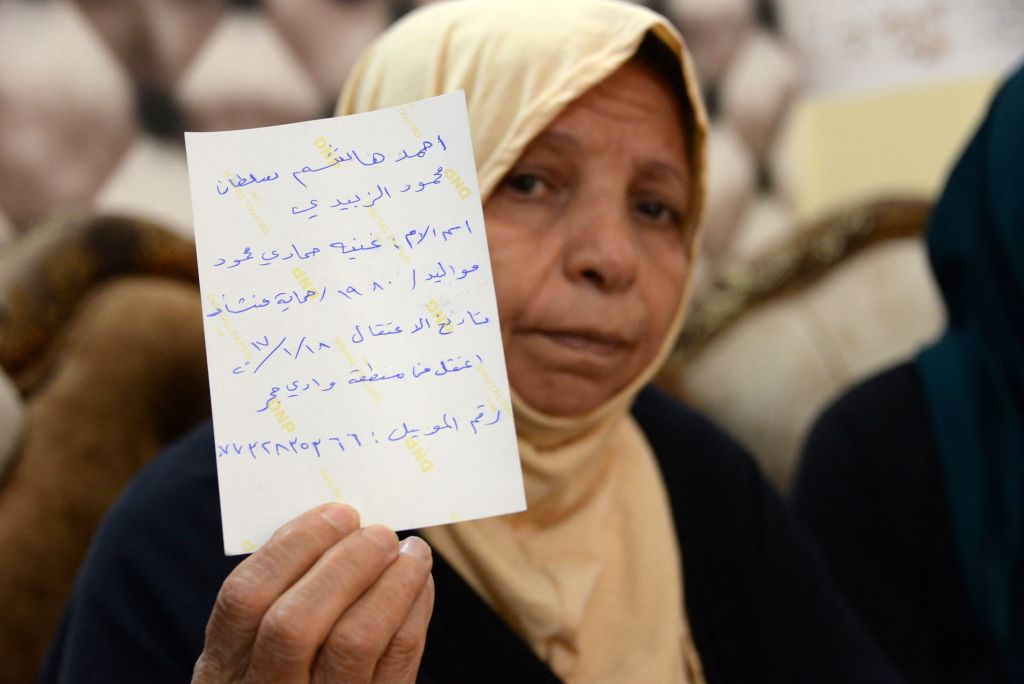 احمد هاشم سلطان
محمود الزبيدي
اسم الام : غنيه حمادي محمود
مواليد / ١٩٨٠ / حماية منشأت
تاريخ الاعتقال ١٧/١/١٨
اعتقل من منطقة وادي حجر
رقم الموبيل : ٧٧٣٢٨٣٥٣٦٦